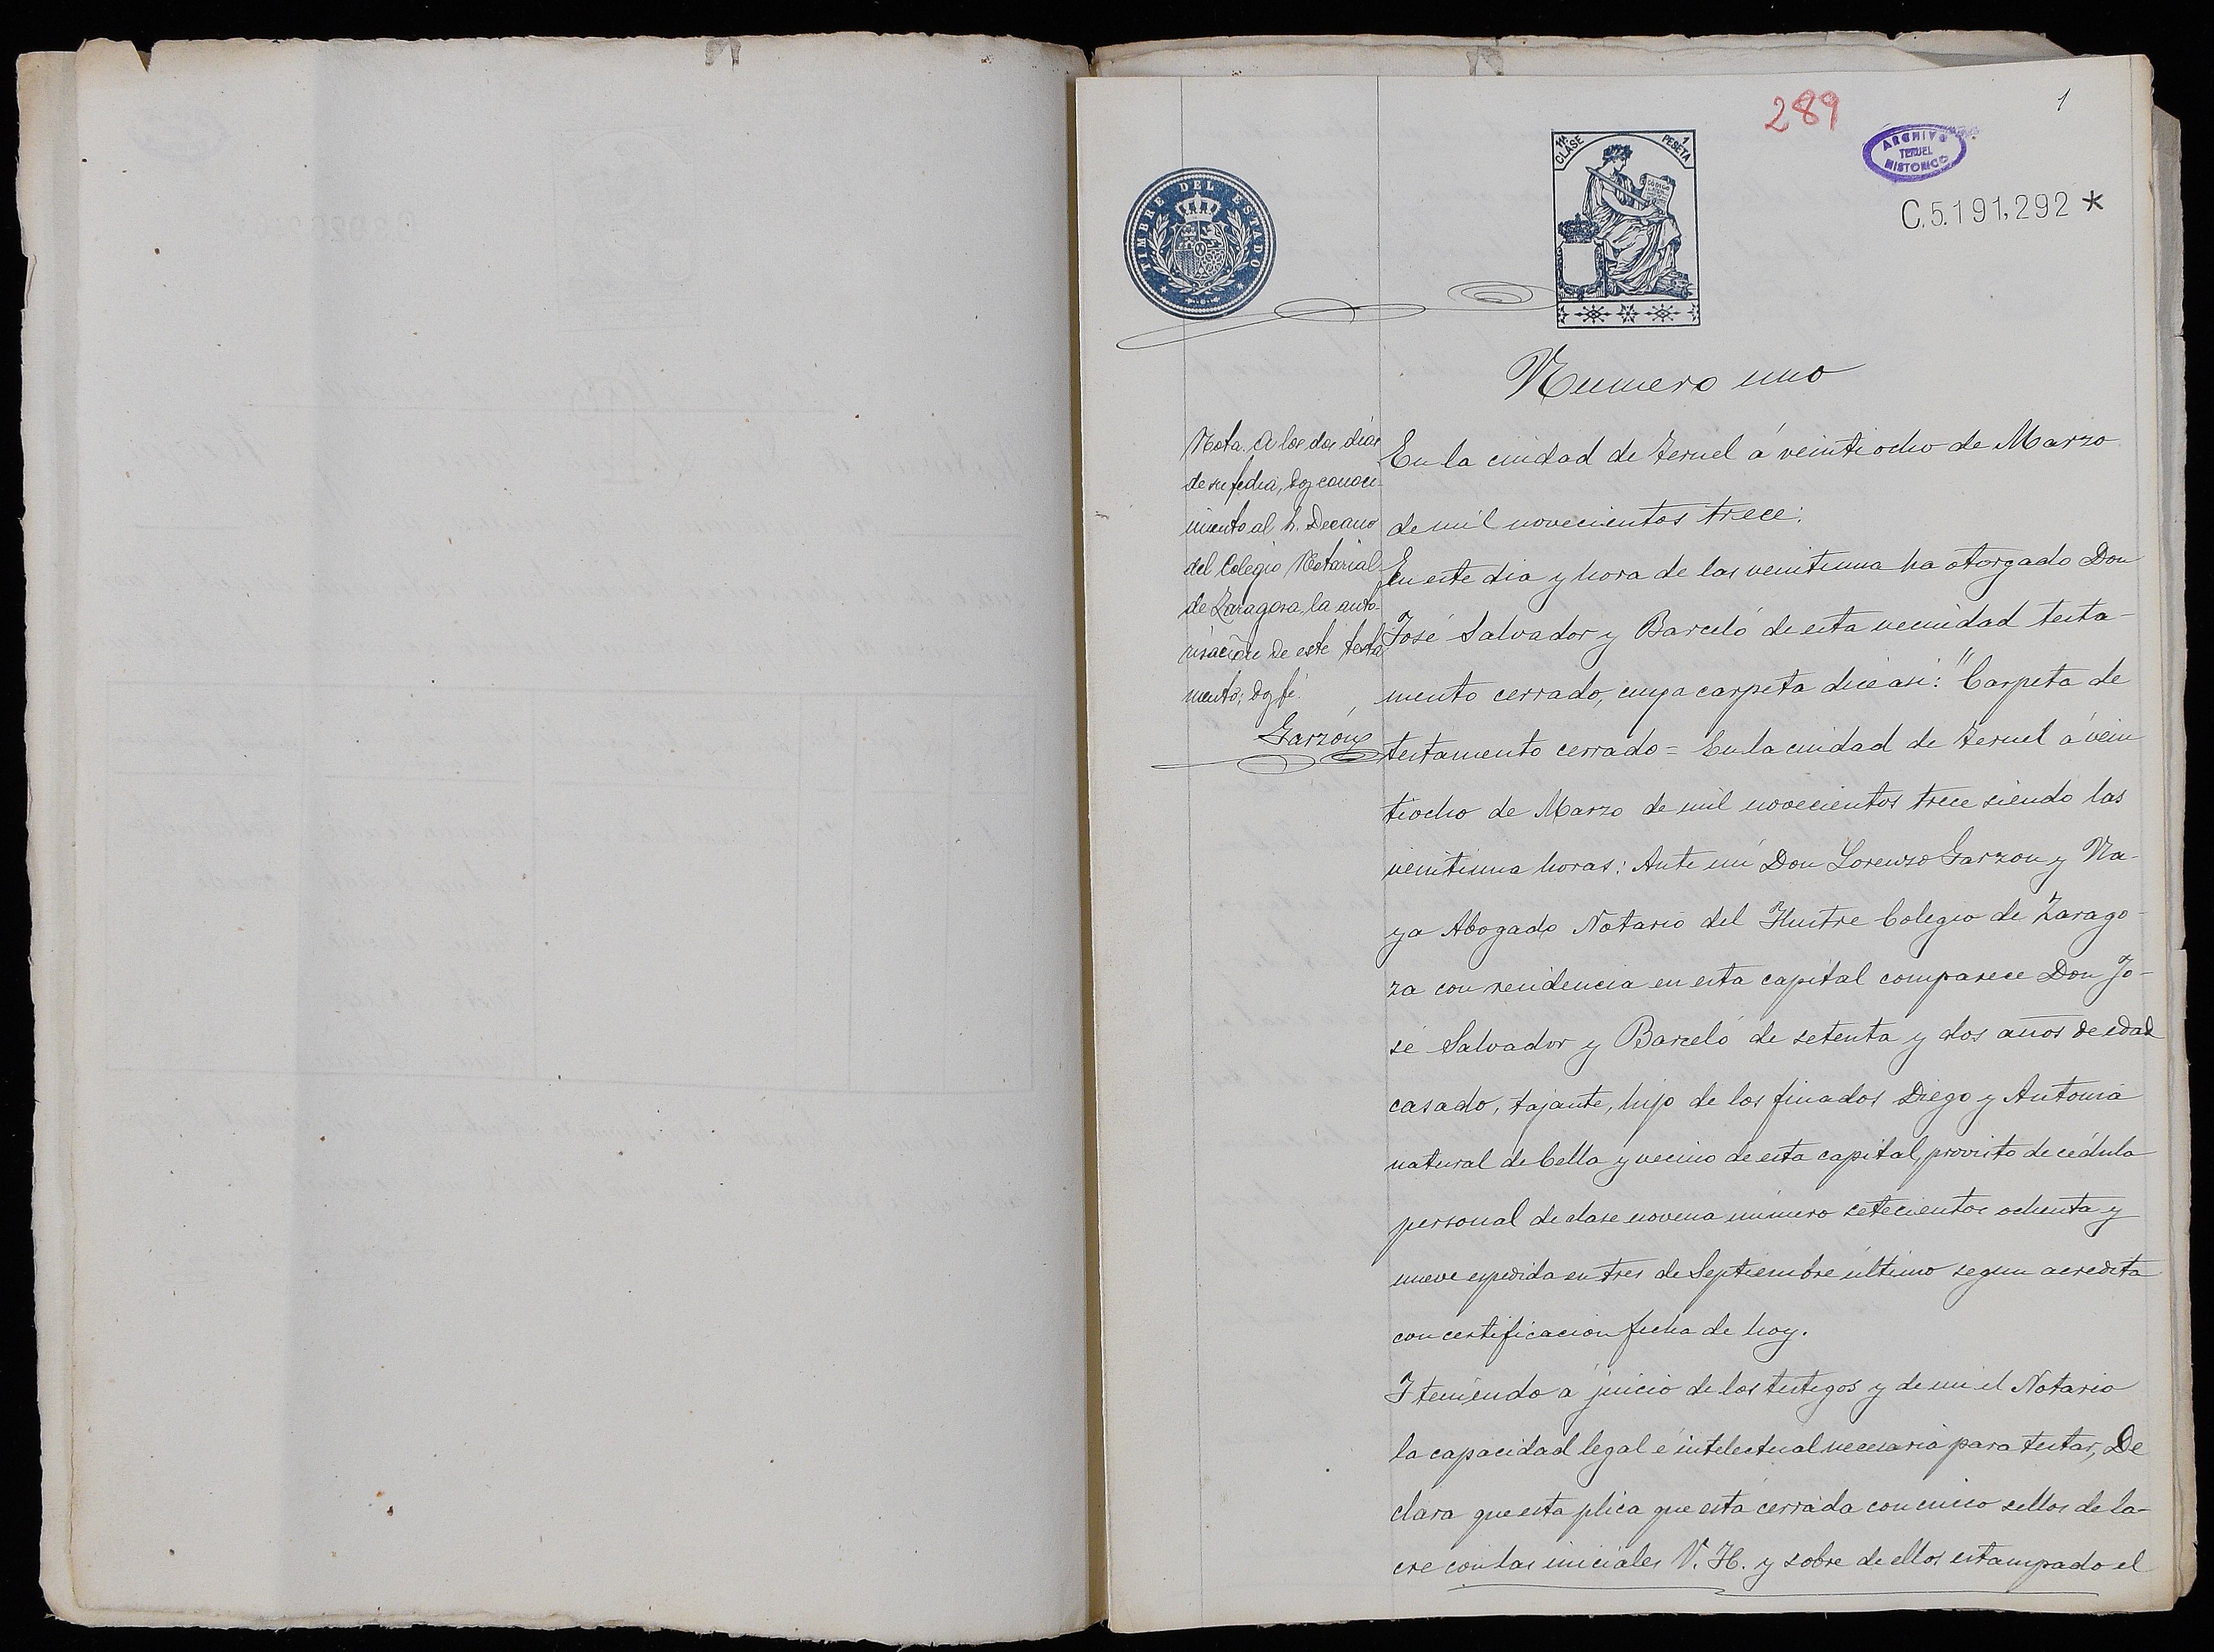 289
1
ARCHIVO
TERUEL
HISTORICO
C.5.191,292 *
TIMBRE DEL ESTADO
11ª CLASE
1 PESETA
CODIGO
Numero uno
Nota. A los dos dias
de su fecha, doy conoci-
miento al S. Decano
del Colegio Notarial
de Zaragoza, la auto-
risación de este testa
mento; doy fé.
Garzón
En la ciudad de Teruel á veintiocho de Marzo
de mil novecientos trece:
En este dia y hora de las veintiuna ha otorgado Don
José Salvador y Barceló de esta vecindad testa-
mento cerrado, cuya carpeta dice asi: "Carpeta de
testamento cerrado = En la ciudad de Teruel á vein
tiocho de Marzo de mil novecientos trece siendo las
veintiuna horas: Ante mi Don Lorenzo Garzon y Na-
ya Abogado Notario del Ilustre Colegio de Zarago-
za con residencia en esta capital comparece Don Jo-
sé Salvador y Barceló de setenta y dos años de edad
casado, tajante, hijo de los finados Diego y Antonia
natural de Cella y vecino de esta capital, provisto de cédula
personal de clase novena número setecientos ochenta y
nueve espedida en tres de Septiembre último segun acredita
con certificacion fecha de hoy.
I teniendo a juicio de los testigos y de mi el Notario
la capacidad legal é intelectual necesaria para testar, De
clara que esta plica que está cerrada con cinco sellos de la-
cre con las iniciales V. H. y sobre de ellos estampado el